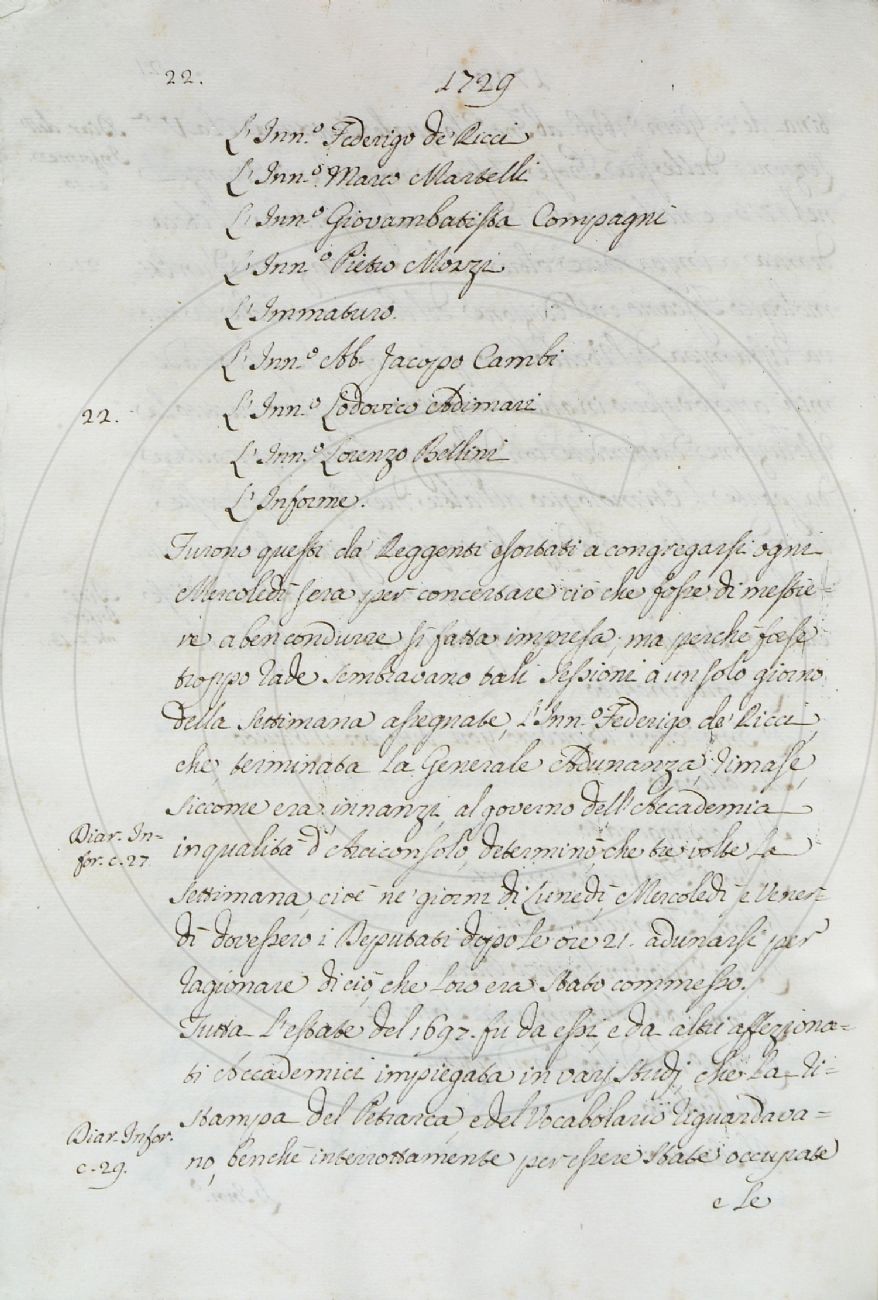 22. 1729
L'Inn.º Federigo de Ricci
L'Inn.º Marco Martelli
L'Inn.º Giovambatista Compagni
L'Inn.º Pietro Mozzi
L'Immaturo.
L'Inn.º Ab. Jacopo Cambi
22. L'Inn.º Lodovico Adimari
L'Inn.º Lorenzo Bellini
L'Informe.
Furono questi da Reggenti esortati a congregarsi ogni
Mercoledì sera per concertare ciò che fosse di mestie-
re a ben condurre sì fatta impresa; ma perchè forse
troppo rade sembravano tali Sessioni a un solo giorno
della Settimana assegnate, l'Inn.º Federigo de' Ricci,
che terminata la Generale Adunanza, rimase,
siccome era innanzi, al governo dell'Accademia
Diar. In-
for. c. 27.
in qualità d'Arciconsolo, determinò, che tre volte la
Settimana, cioè ne' giorni di Lunedì, Mercoledì e Vener-
dì dovessero i Deputati dopo le ore 21. adunarsi per
ragionare di ciò, che loro era stato commesso.
Tutta l'estate del 1697. fu da essi, e da altri affeziona-
ti Accademici impiegata in varj studj, che la ri-
stampa del Petrarca, e del Vocabolario riguardava-
Diar. Infor.
c. 29.
no, benchè interrottamente per essere state occupate
e le